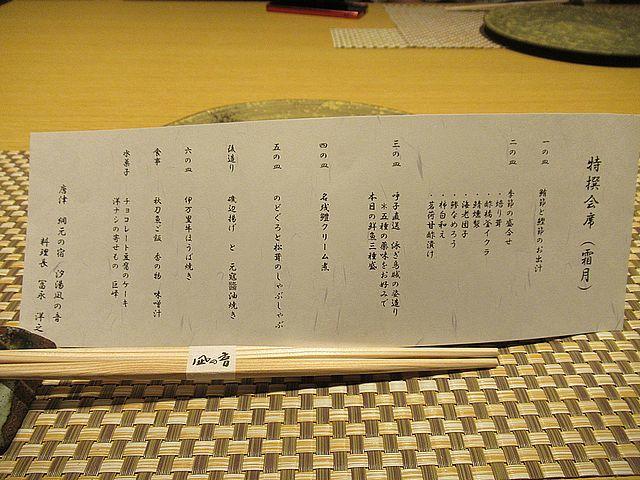 特撰会席（霜月）
一の皿
鯖節と鰹節のお出汁
二の皿
季節の盛合せ
・焙り茸
・酢橘釜イクラ
・鯖燻製
・海老団子
・鯵なめろう
・柿白和え
・茗荷甘酢漬け
三の皿
呼子直送 泳ぎ烏賊の姿造り
※五種の薬味をお好みで
本日の鮮魚三種盛
四の皿
名残鱧クリーム煮
五の皿
のどぐろと松茸のしゃぶしゃぶ
後造り
磯辺揚げ と 元寇醤油焼き
六の皿
伊万里牛ほうば焼き
食事
秋刀魚ご飯 香の物 味噌汁
水菓子
チョコレート豆腐のケーキ
洋ナシの寄せもの 巨峰
唐津 網元の宿 汐湯凪の音
料理長 冨永 洋之
凪の音